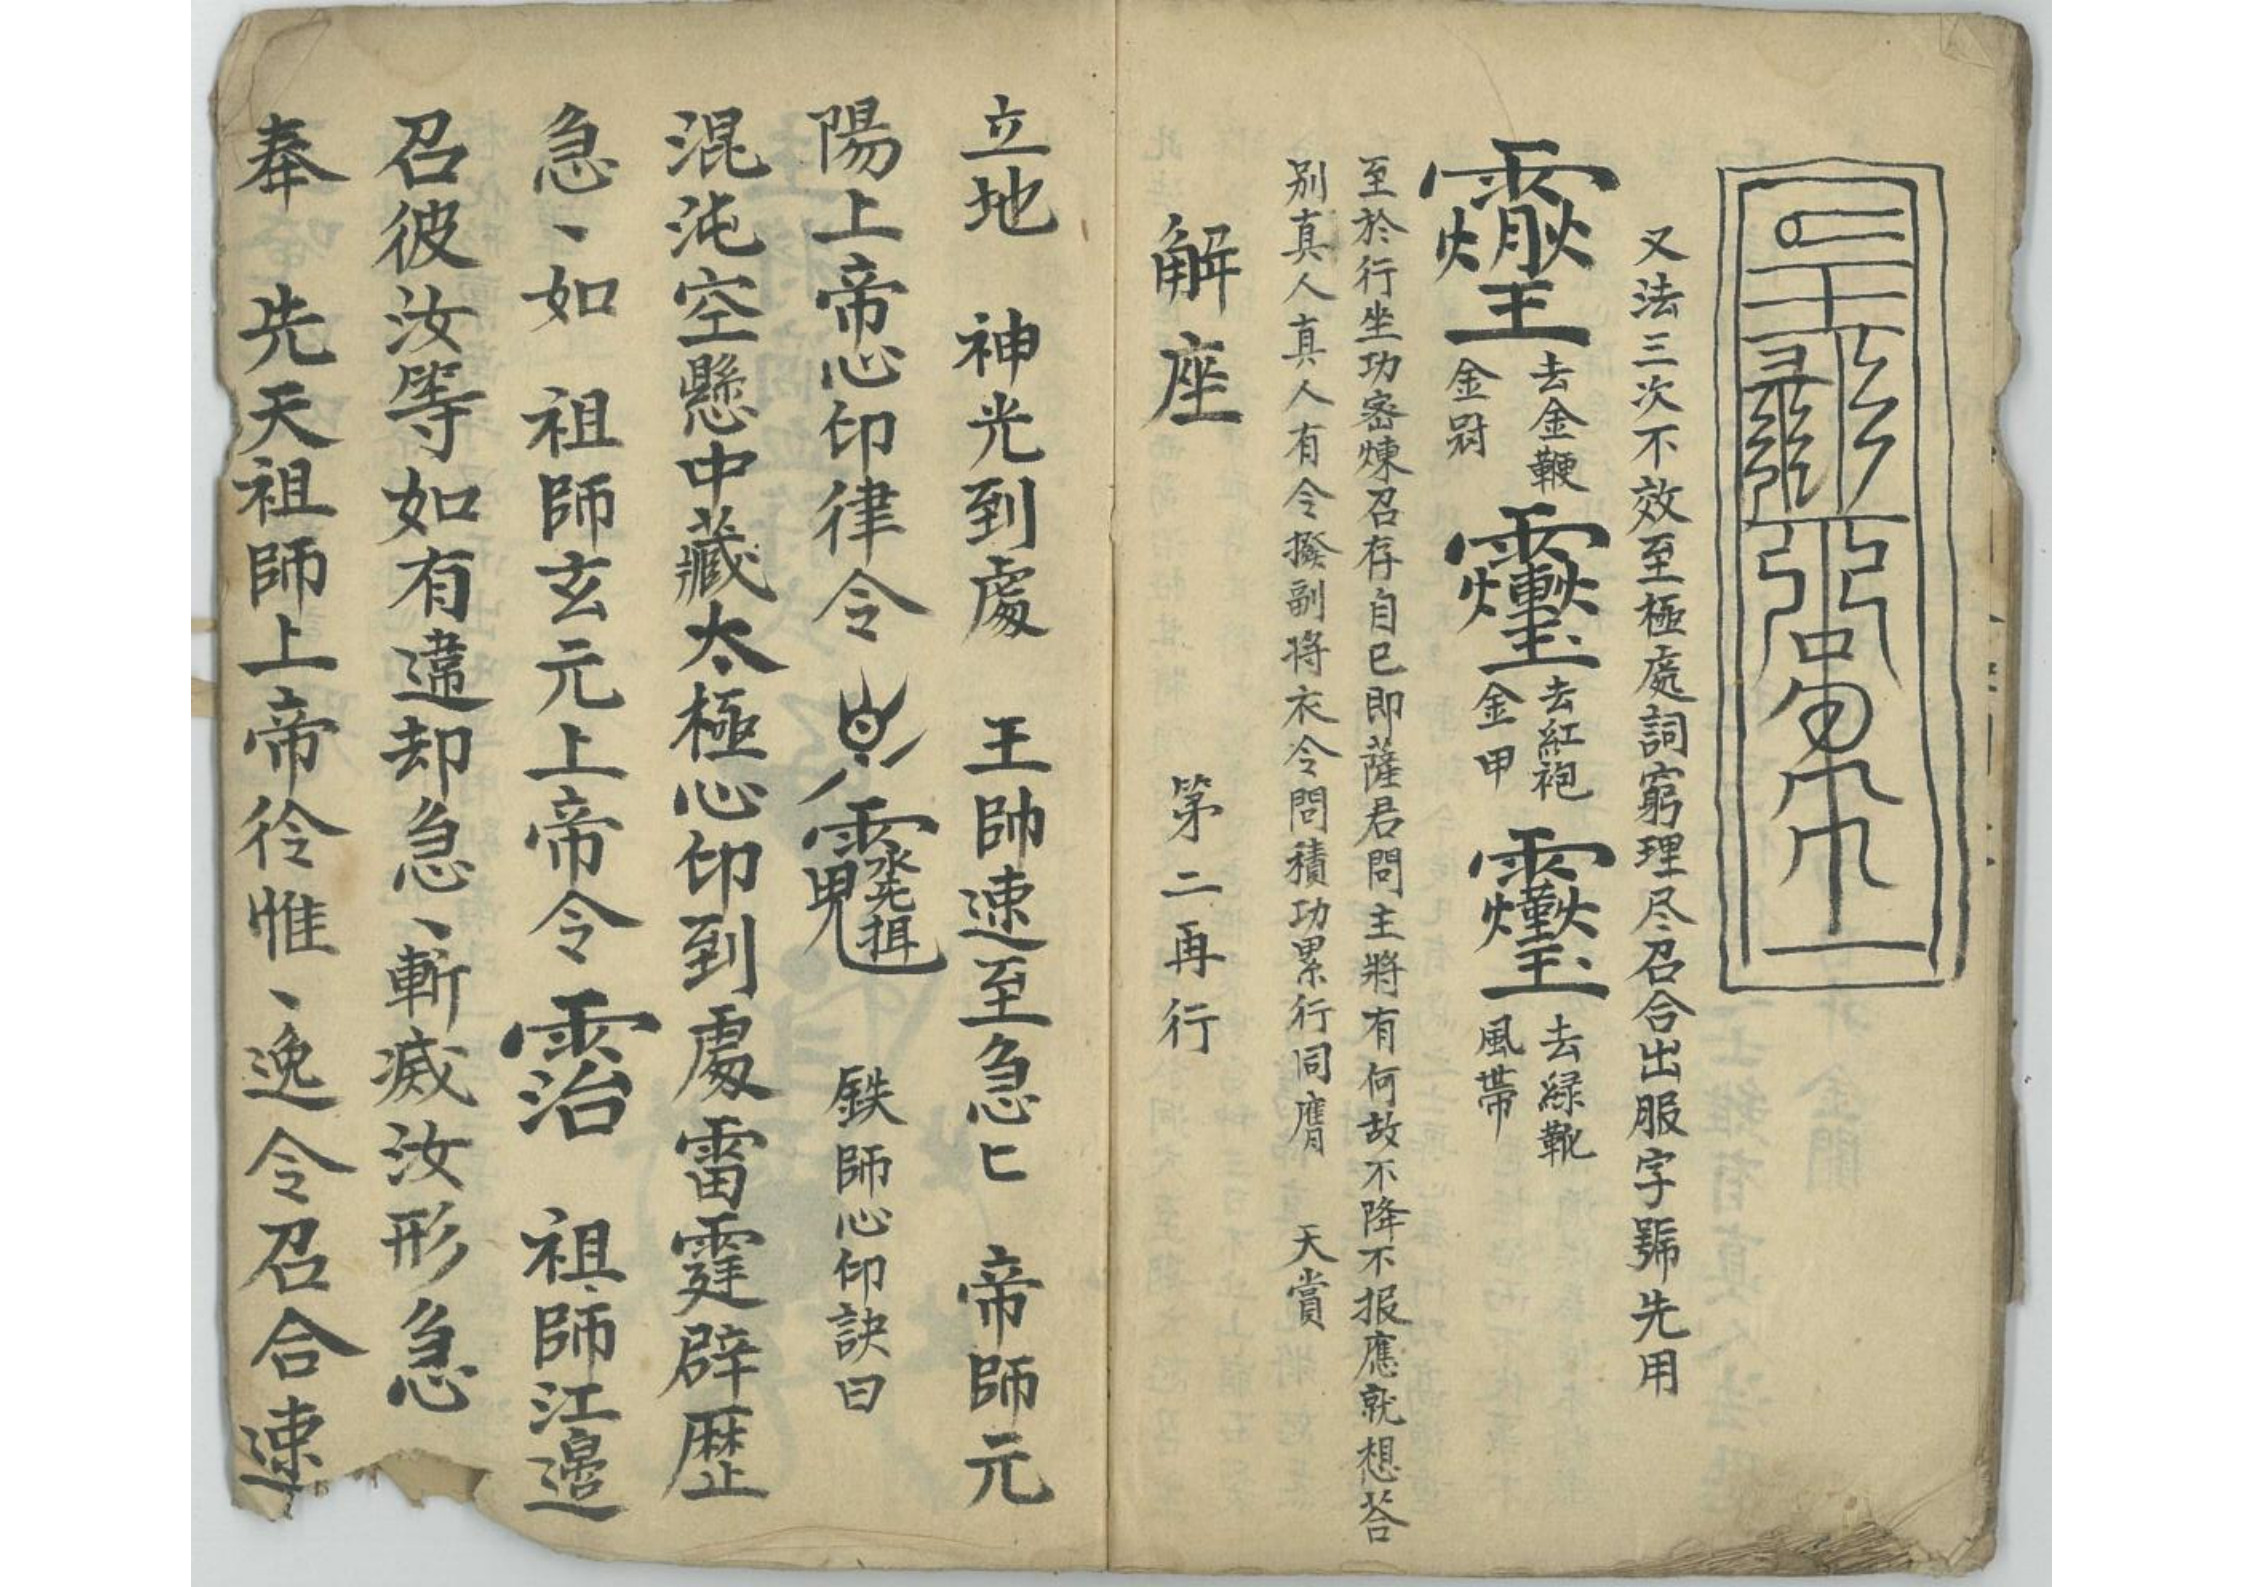 又法三次不效至極處詞窮理尽召合出服字號先用
去金鞭
金尉
去紅袍
金甲
去緑靴
風帶
至於行坐功密煉召存自已即薩君問主將有何故不降不报應就想荅
别真人真人有令撥副将衣令問積功累行同膺 天賞
解座 第二再行
立地 神光到處 王帥速至急匕 帝師元
陽上帝心印律令 鉄師心印訣曰
混沌空懸中藏太極心印到處雷霆辟歷
急、如 祖師玄元上帝令 祖師江邊
召彼汝等如有違却急、斬滅汝形急
奉 先天祖師上帝彾惟、逸令召合速